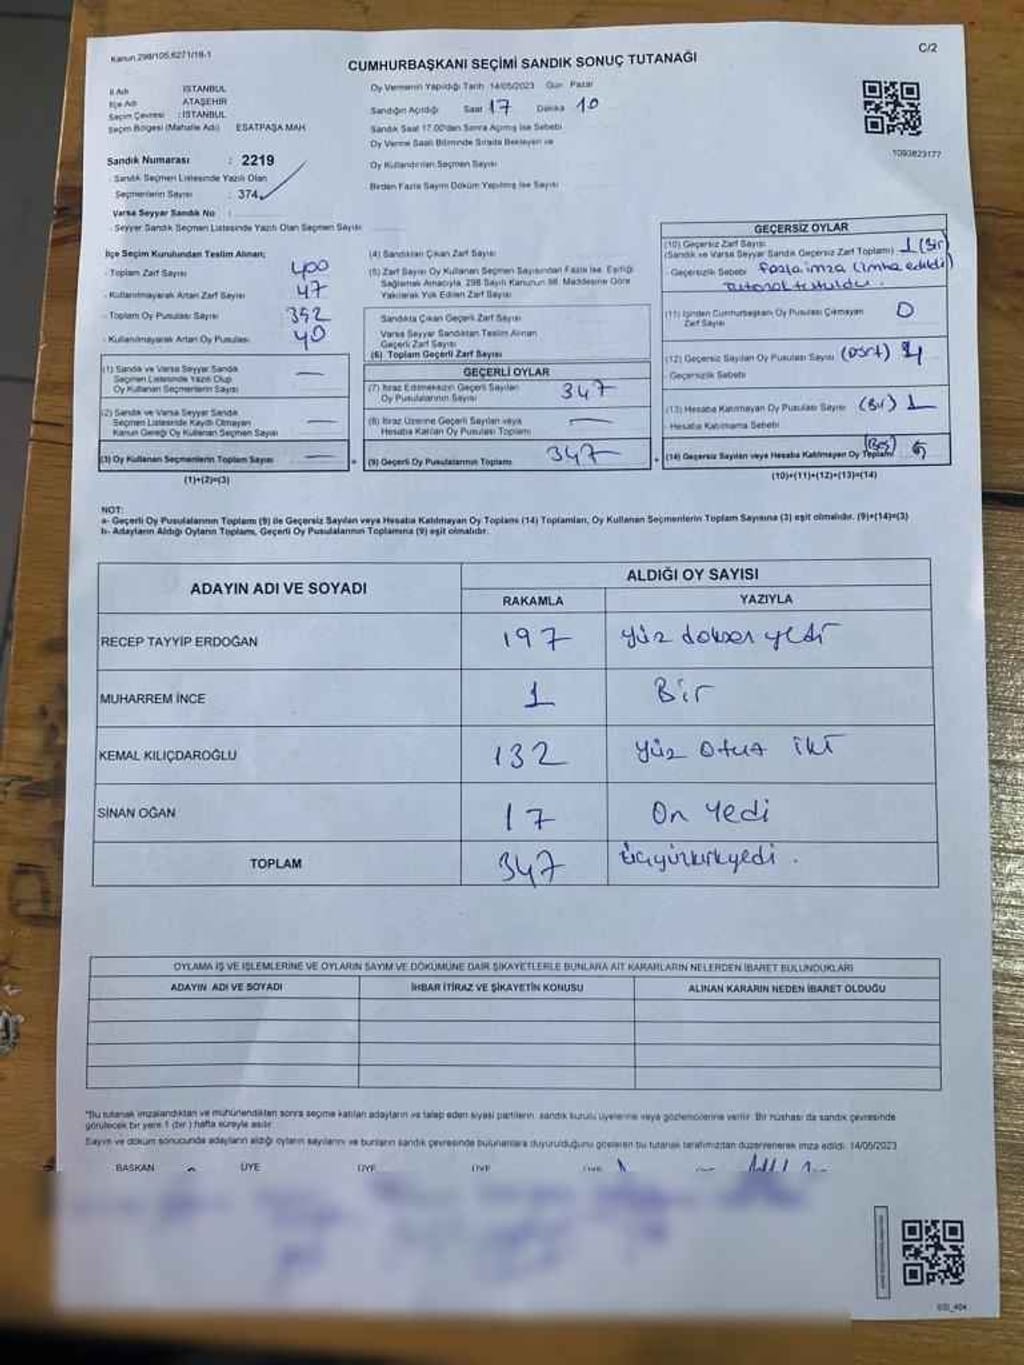 Kanun 298/105,6271/19-1
C/2
CUMHURBAŞKANI SEÇİMİ SANDIK SONUÇ TUTANAĞI
İl Adı : İSTANBUL
İlçe Adı : ATAŞEHİR
Seçim Çevresi : İSTANBUL
Seçim Bölgesi (Mahalle Adı) : ESATPAŞA MAH.
Sandık Numarası : 2219
Sandık Seçmen Listesinde Yazılı Olan
Seçmenlerin Sayısı : 374
Varsa Seyyar Sandık No :
Seyyar Sandık Seçmen Listesinde Yazılı Olan Seçmen Sayısı
Oy Vermenin Yapıldığı Tarih 14/05/2023 Gün Pazar
Sandığın Açıldığı Saat 17 Dakika 10
Sandık Saat 17.00'den Sonra Açılmış İse Sebebi
Oy Verme Saati Bitiminde Sırada Bekleyen ve
Oy Kullandırılan Seçmen Sayısı
Birden Fazla Sayım Döküm Yapılmış İse Sayısı
1093823177
İlçe Seçim Kurulundan Teslim Alınan;
- Toplam Zarf Sayısı 400
- Kullanılmayarak Artan Zarf Sayısı 47
- Toplam Oy Pusulası Sayısı 392
- Kullanılmayarak Artan Oy Pusulası 40
(1) Sandık ve Varsa Seyyar Sandık
Seçmen Listesinde Yazılı Olup
Oy Kullanan Seçmenlerin Sayısı —
(2) Sandık ve Varsa Seyyar Sandık
Seçmen Listesinde Kayıtlı Olmayan
Kanun Gereği Oy Kullanan Seçmen Sayısı —
(3) Oy Kullanan Seçmenlerin Toplam Sayısı —
(1)+(2)=(3)
(4) Sandıktan Çıkan Zarf Sayısı
(5) Zarf Sayısı Oy Kullanan Seçmen Sayısından Fazla İse, Eşitliği
Sağlamak Amacıyla, 298 Sayılı Kanunun 98. Maddesine Göre
Yakılarak Yok Edilen Zarf Sayısı
Sandıkta Çıkan Geçerli Zarf Sayısı
Varsa Seyyar Sandıktan Teslim Alınan
Geçerli Zarf Sayısı
(6) Toplam Geçerli Zarf Sayısı
GEÇERLİ OYLAR
(7) İtiraz Edilmeksizin Geçerli Sayılan
Oy Pusulalarının Sayısı 347
(8) İtiraz Üzerine Geçerli Sayılan veya
Hesaba Katılan Oy Pusulası Toplamı —
(9) Geçerli Oy Pusulalarının Toplamı 347
GEÇERSİZ OYLAR
(10) Geçersiz Zarf Sayısı
(Sandık ve Varsa Seyyar Sandık Geçersiz Zarf Toplamı) 1 (Bir)
- Geçersizlik Sebebi fazla imza (imha edildi)
(11) İçinden Cumhurbaşkanı Oy Pusulası Çıkmayan
Zarf Sayısı 0
(12) Geçersiz Sayılan Oy Pusulası Sayısı (Dört) 4
- Geçersizlik Sebebi
(13) Hesaba Katılmayan Oy Pusulası Sayısı (Bir) 1
- Hesaba Katılmama Sebebi
(14) Geçersiz Sayılan veya Hesaba Katılmayan Oy Toplamı (Beş)
(10)+(11)+(12)+(13)=(14)
NOT:
a- Geçerli Oy Pusulalarının Toplamı (9) ile Geçersiz Sayılan veya Hesaba Katılmayan Oy Toplamı (14) Toplamları, Oy Kullanan Seçmenlerin Toplam Sayısına (3) eşit olmalıdır. (9)+(14)=(3)
b- Adayların Aldığı Oyların Toplamı, Geçerli Oy Pusulalarının Toplamına (9) eşit olmalıdır.
ADAYIN ADI VE SOYADI
ALDIĞI OY SAYISI
RAKAMLA YAZIYLA
RECEP TAYYİP ERDOĞAN 197 yüz doksan yedi
MUHARREM İNCE 1 Bir
KEMAL KILIÇDAROĞLU 132 yüz otuz iki
SİNAN OĞAN 17 On yedi
TOPLAM 347 üçyüzkırkyedi.
OYLAMA İŞ VE İŞLEMLERİNE VE OYLARIN SAYIM VE DÖKÜMÜNE DAİR ŞİKAYETLERLE BUNLARA AİT KARARLARIN NELERDEN İBARET BULUNDUKLARI
ADAYIN ADI VE SOYADI İHBAR İTİRAZ VE ŞİKAYETİN KONUSU ALINAN KARARIN NEDEN İBARET OLDUĞU
*Bu tutanak imzalandıktan ve mühürlendikten sonra seçime katılan adayların ve talep eden siyasi partilerin, sandık kurulu üyelerine veya gözlemcilerine verilir. Bir nüshası da sandık çevresinde
görülecek bir yere 1 (bir) hafta süreyle asılır.
Sayım ve döküm sonucunda adayların aldığı oyların sayılarını ve bunların sandık çevresinde bulunanlara duyurulduğunu gösteren bu tutanak tarafımızdan düzenlenerek imza edildi. 14/05/2023
BAŞKAN ÜYE ÜYE ÜYE